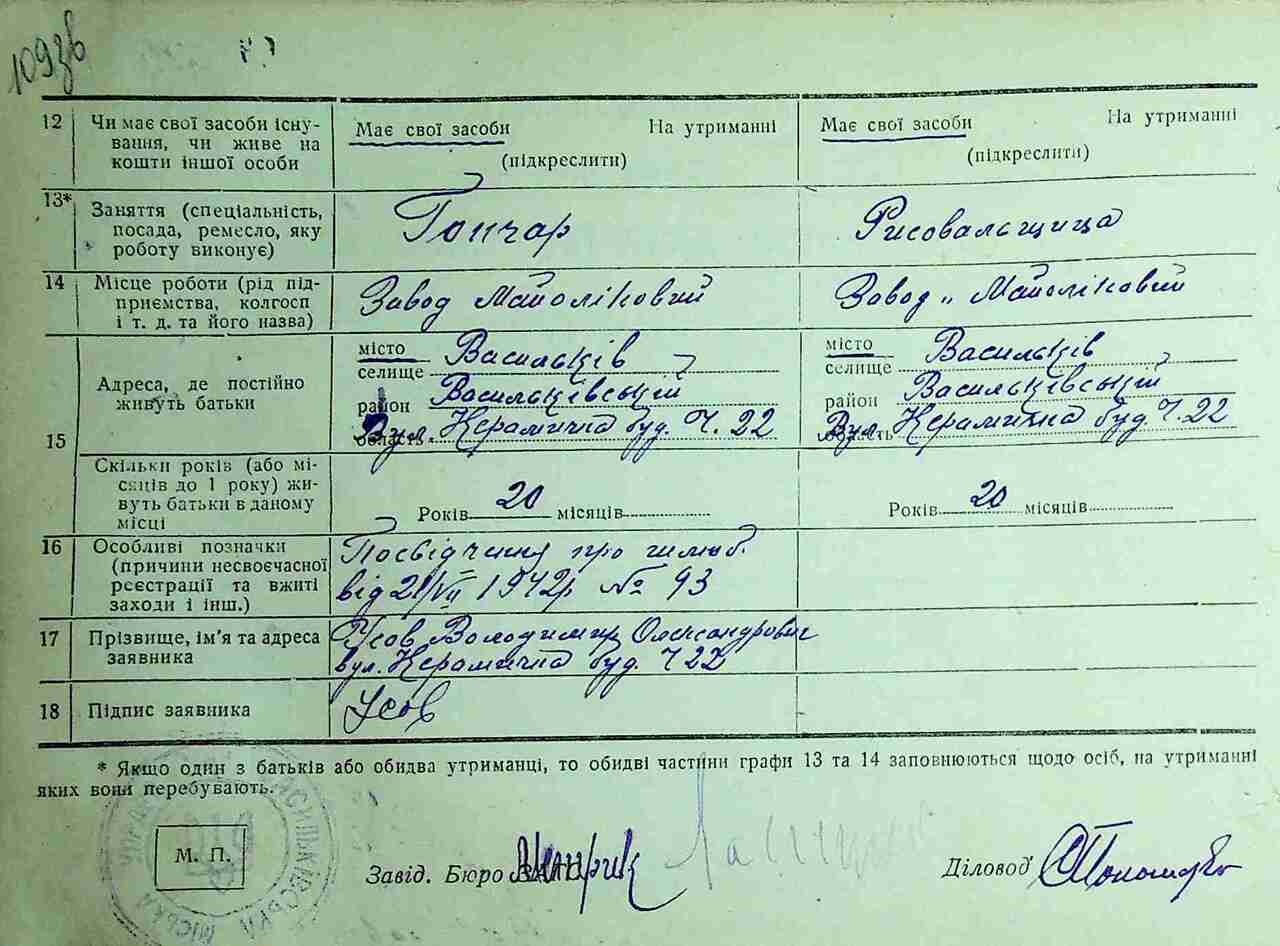 109зв
12 Чи має свої засоби існу-
вання, чи живе на
кошти іншої особи
Має свої засоби На утриманні
(підкреслити)
Має свої засоби На утриманні
(підкреслити)
13* Заняття (спеціальність,
посада, ремесло, яку
роботу виконує)
Гончар
Рисовальщица
14 Місце роботи (рід під-
приємства, колгосп
і т. д. та його назва)
Завод Майоліковий
Завод „ Майоліковий
15
Адреса, де постійно
живуть батьки
місто Васильків
селище
район Васильківський
область Вул. Керамична буд. Ч. 22
місто Васильків
селище
район Васильківський
область Вул. Керамична буд. Ч. 22
Скільки років (або мі-
сяців до 1 року) жи-
вуть батьки в даному
місці
Років 20 місяців
Років 20 місяців
16 Особливі позначки
(причини несвоєчасної
реєстрації та вжиті
заходи і інш.)
Посвідчення про шлюб.
від 21/VII 1942р № 93
17 Прізвище, ім'я та адреса
заявника
Усов Володимир Олександрович
вул. Керамична буд. Ч 22
18 Підпис заявника
Усов
* Якщо один з батьків або обидва утриманці, то обидві частини графи 13 та 14 заповнюються щодо осіб, на утриманні
яких вони перебувають.
М. П.
Завід. Бюро ЗАГС
Діловод